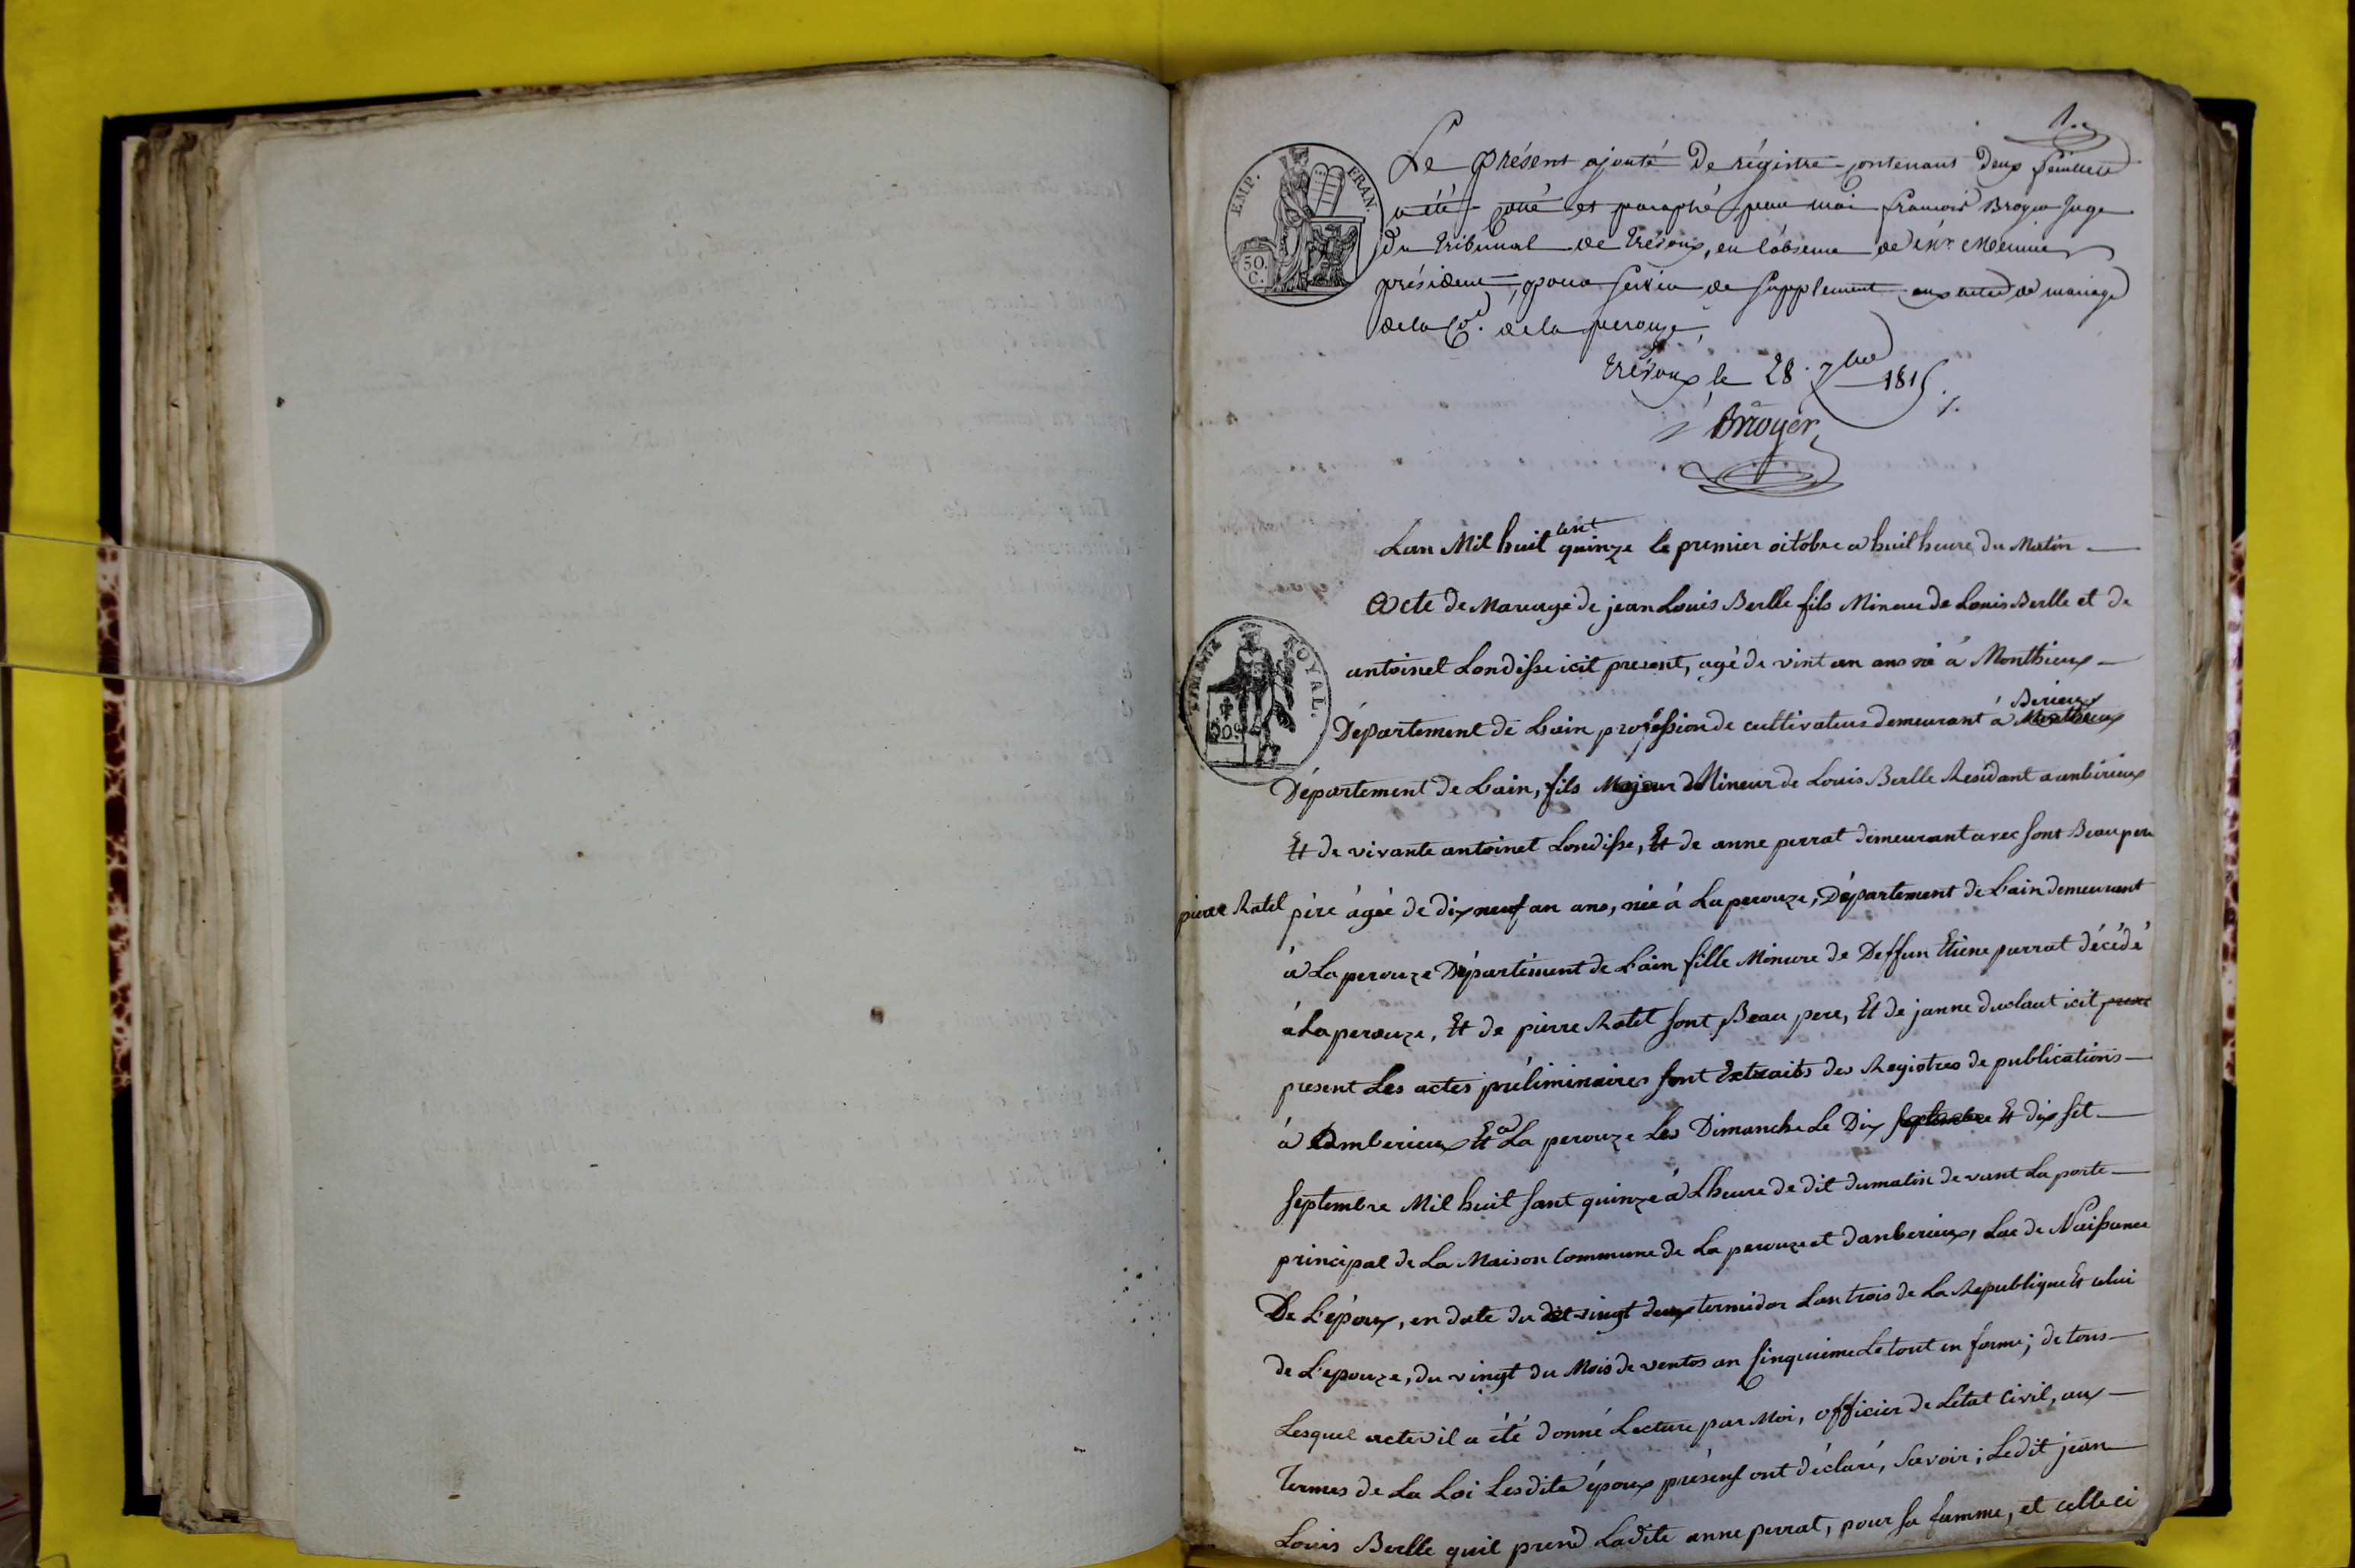 1.
EMP. FRAN.
50. C.
Le présent ajouté De régistre contenant Deux feuillets
a été coté et paraphé par moi françois Broyer Juge
du tribunal de trévoux, en l'absence de Mr. Meunier
président, pour servir de supplement aux actes de mariage
de la Cne. de la perouze,
trévoux, le 28. 7bre 1815 /.
Broyer
Lan Mil huit cent quinze le premier octobre a huit heure, du Matin —
Acte de Mariage de jean Louis Berlle fils Mineur de Louis Berlle et de
TIMBRE ROYAL.
50c
antoinet Londisse icit present, agé de vint un ans né à Monthieux —
Département de L'ain profession de cultivateur demeurant à Monthieux Berieux
Département de L'ain, fils Majeur Mineur de Louis Berlle Residant a anbirieux
Et de vivante antoinet Londisse, Et de anne perrat demeurant avec sont Beau pere
pierre Ratel père âgée de dix neuf an ans, née à La perouze, Département de L'ain demeurant
à La perouze Département de L'ain fille Mineure de Deffun Etiene parrat décédé
à La perouze, Et de pierre Ratel sont Beau pere, Et de janne duclaut icit
present Les actes préliminaires sont Extraits des Registres de publications —
à amberieux Et a La perouze Les Dimanche Le Dix septembre Et dix set —
septembre Mil huit sant quinze à Lheure de dit du matin devant La porte —
principal de La Maison Commune de La perouze et danberieux, Lac de Naissance
De L'époux, en date du vingt deux termidor Lan trois de La Republique Et celui
de L'epouze, du vingt du Mois de ventos an sinquieme Le tout en forme; de tous —
Lesquel actes il a été donné Lecture par Moi, officier de L'état Civil, aux —
Termes de La Loi Lesdits époux présens ont déclaré, Savoir; Ledit jean —
Louis Berlle quil prend Ladite anne perrat, pour sa famme, et celle ci